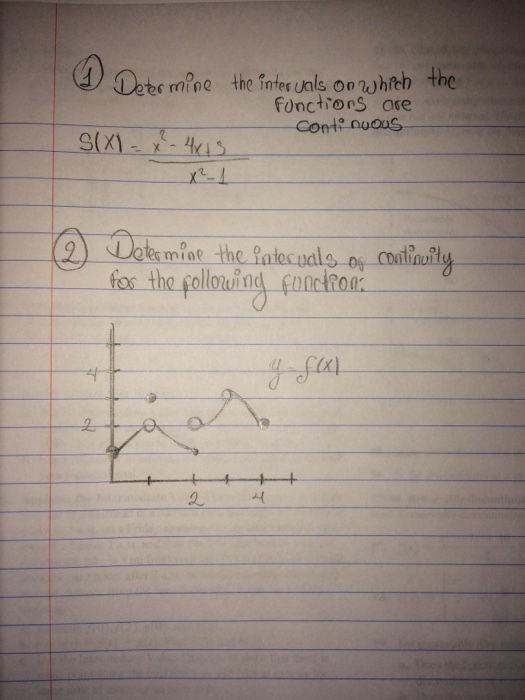 ① Determine the intervals on which the
functions are
continuous
S(x) = x² - 4x + 3
x² - 1
② Determine the intervals of continuity
for the following function:
4
y = f(x)
2
2 4